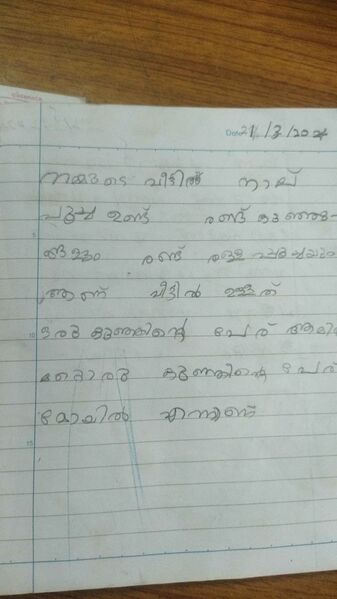 Date 21/3/2024
നമ്മുടെ വീട്ടിൽ നാല്
പൂച്ച ഉണ്ട് രണ്ട് കുഞ്ഞു-
ങ്ങളും രണ്ട് തള്ള പൂച്ചയും
ആണ് വീട്ടിൽ ഉള്ളത്
ഒരു കുഞ്ഞിന്റെ പേര്
മറ്റൊരു കുഞ്ഞിന്റെ പേര്
എന്നാണ്